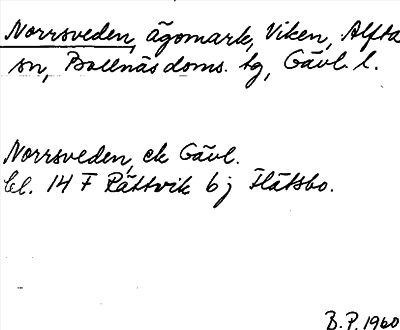 Norrsveden, ägomark, Viken, Alfta
sn, Bollnäs doms. tg, Gävl. l.
Norrsveden, ek Gävl.
bl. 14 F Rättvik b j Flätsbo.
B.P. 1960